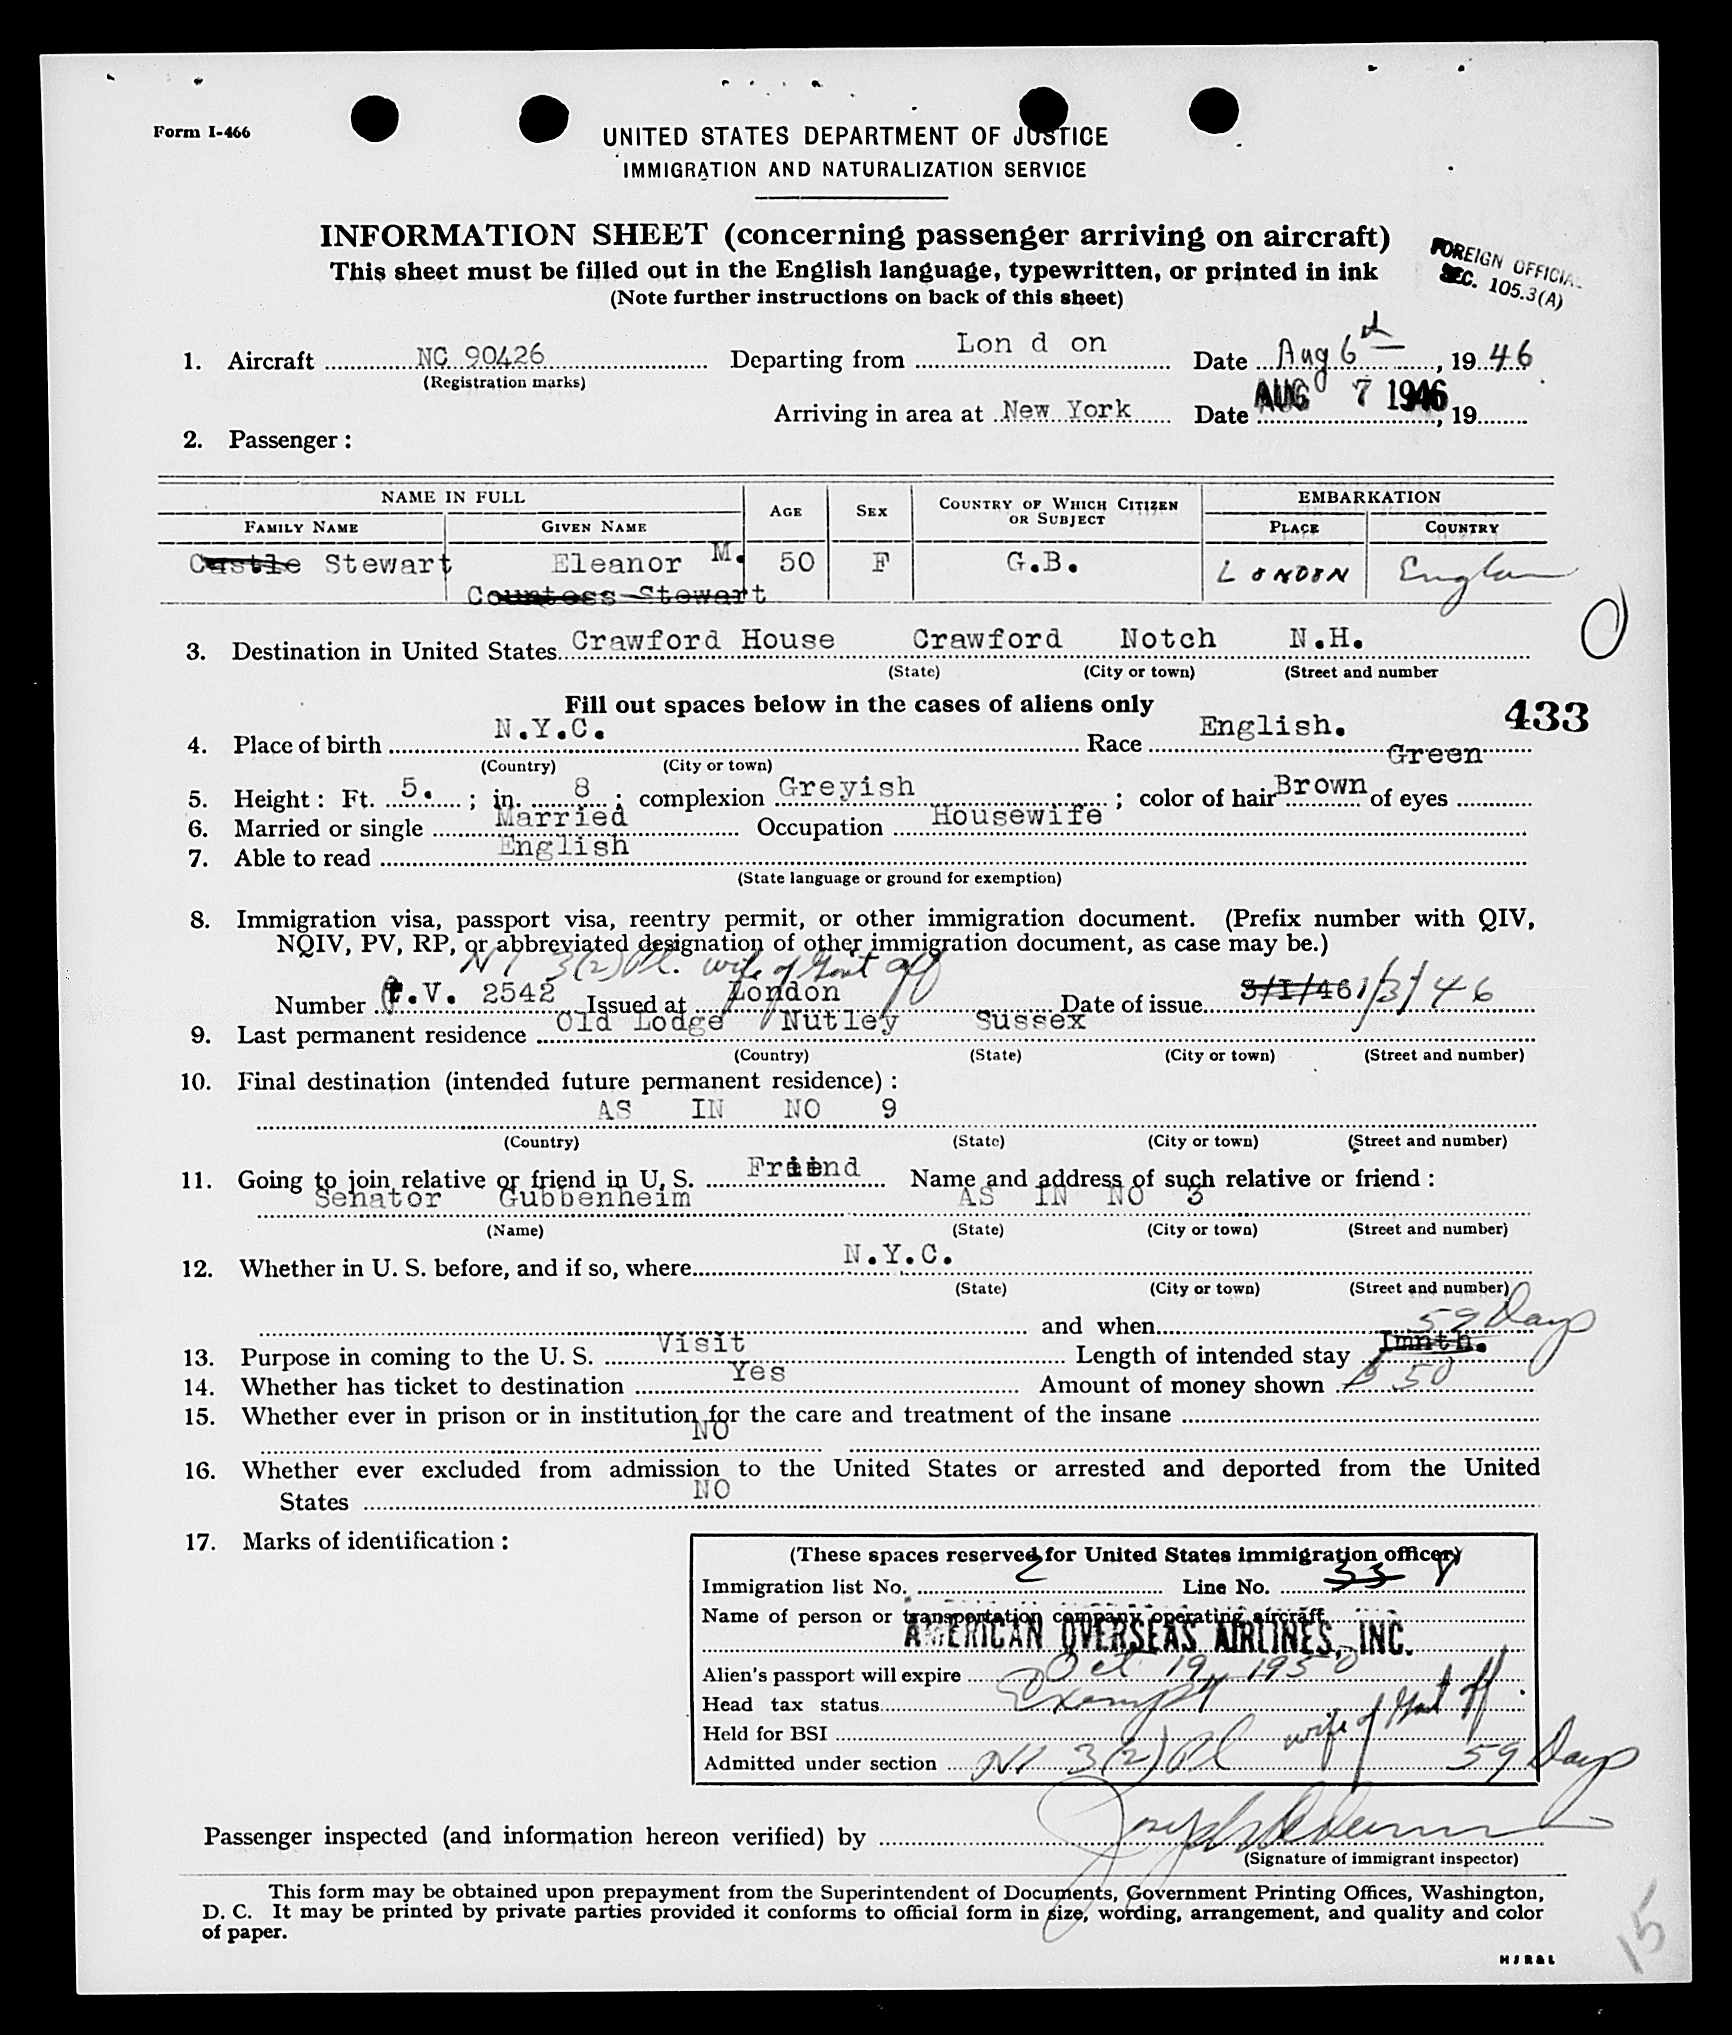 Form I-466
UNITED STATES DEPARTMENT OF JUSTICE
IMMIGRATION AND NATURALIZATION SERVICE
INFORMATION SHEET (concerning passenger arriving on aircraft)
This sheet must be filled out in the English language, typewritten, or printed in ink
(Note further instructions on back of this sheet)
FOREIGN OFFICIAL
SEC. 105.3(A)
1. Aircraft NC 90426 Departing from Lon d on Date Aug 6th, 19 46
(Registration marks)
Arriving in area at New York Date AUG 7 1946, 19
2. Passenger:
NAME IN FULL AGE SEX COUNTRY OF WHICH CITIZEN OR SUBJECT EMBARKATION
FAMILY NAME GIVEN NAME PLACE COUNTRY
Castle Stewart Eleanor M. 50 F G.B. LONDON England
Countess Stewart
3. Destination in United States Crawford House Crawford Notch N.H.
(State) (City or town) (Street and number
Fill out spaces below in the cases of aliens only
433
4. Place of birth N.Y.C. Race English.
(Country) (City or town)
5. Height: Ft. 5. ; in. 8 ; complexion Greyish ; color of hair Brown of eyes Green
6. Married or single Married Occupation Housewife
7. Able to read English
(State language or ground for exemption)
8. Immigration visa, passport visa, reentry permit, or other immigration document. (Prefix number with QIV,
NQIV, PV, RP, or abbreviated designation of other immigration document, as case may be.)
3(2) wife of Govt off
Number P.V. 2542 Issued at London Date of issue 3/I/46 1/3/46
9. Last permanent residence Old Lodge Nutley Sussex
(Country) (State) (City or town) (Street and number)
10. Final destination (intended future permanent residence):
AS IN NO 9
(Country) (State) (City or town) (Street and number)
11. Going to join relative or friend in U. S. Friend Name and address of such relative or friend:
Senator Gubbenheim AS IN NO 3
(Name) (State) (City or town) (Street and number)
12. Whether in U. S. before, and if so, where N.Y.C.
(State) (City or town) (Street and number)
and when
59 Days
13. Purpose in coming to the U. S. Visit Length of intended stay Imnth.
14. Whether has ticket to destination Yes Amount of money shown $ 50
15. Whether ever in prison or in institution for the care and treatment of the insane
NO
16. Whether ever excluded from admission to the United States or arrested and deported from the United
States NO
17. Marks of identification:
(These spaces reserved for United States immigration officer)
Immigration list No. 2 Line No. 33
Name of person or transportation company operating aircraft
AMERICAN OVERSEAS AIRLINES, INC.
Alien's passport will expire Oct 19, 1950
Head tax status Exempt
Held for BSI wife of Govt off.
Admitted under section 3(2) 59 Days
Passenger inspected (and information hereon verified) by
(Signature of immigrant inspector)
This form may be obtained upon prepayment from the Superintendent of Documents, Government Printing Offices, Washington,
D. C. It may be printed by private parties provided it conforms to official form in size, wording, arrangement, and quality and color
of paper.
15